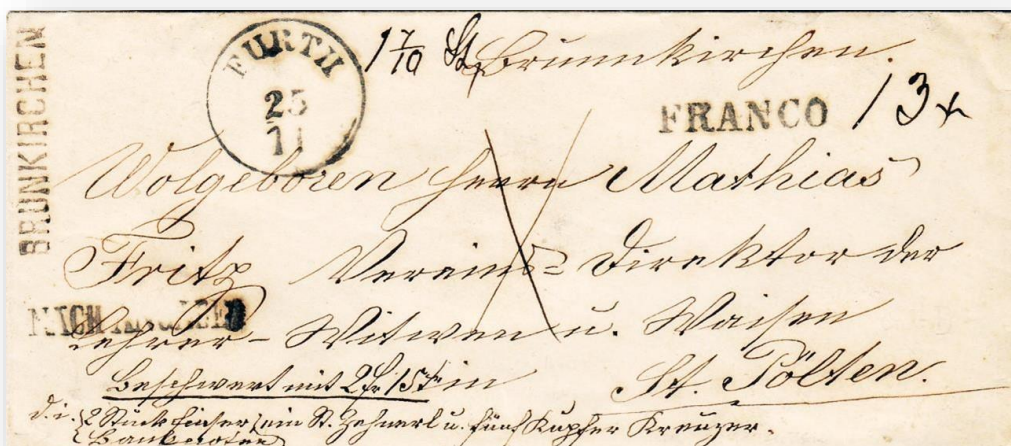 BRUNKIRCHEN
FURTH
25
11
1 7/10 Lt. Brunnkirchen.
FRANCO 13 x
Wolgeboren Herrn Mathias
Fritz Vereins= Direktor der
NACH
Lehrer- Witwen u. Waisen
beschwert mit 2 fr 15 in St. Pölten.
d. i. 2 Stück Einser ein St. Zehnerl u. fünf Kupfer Kreuzer.
Banknoten